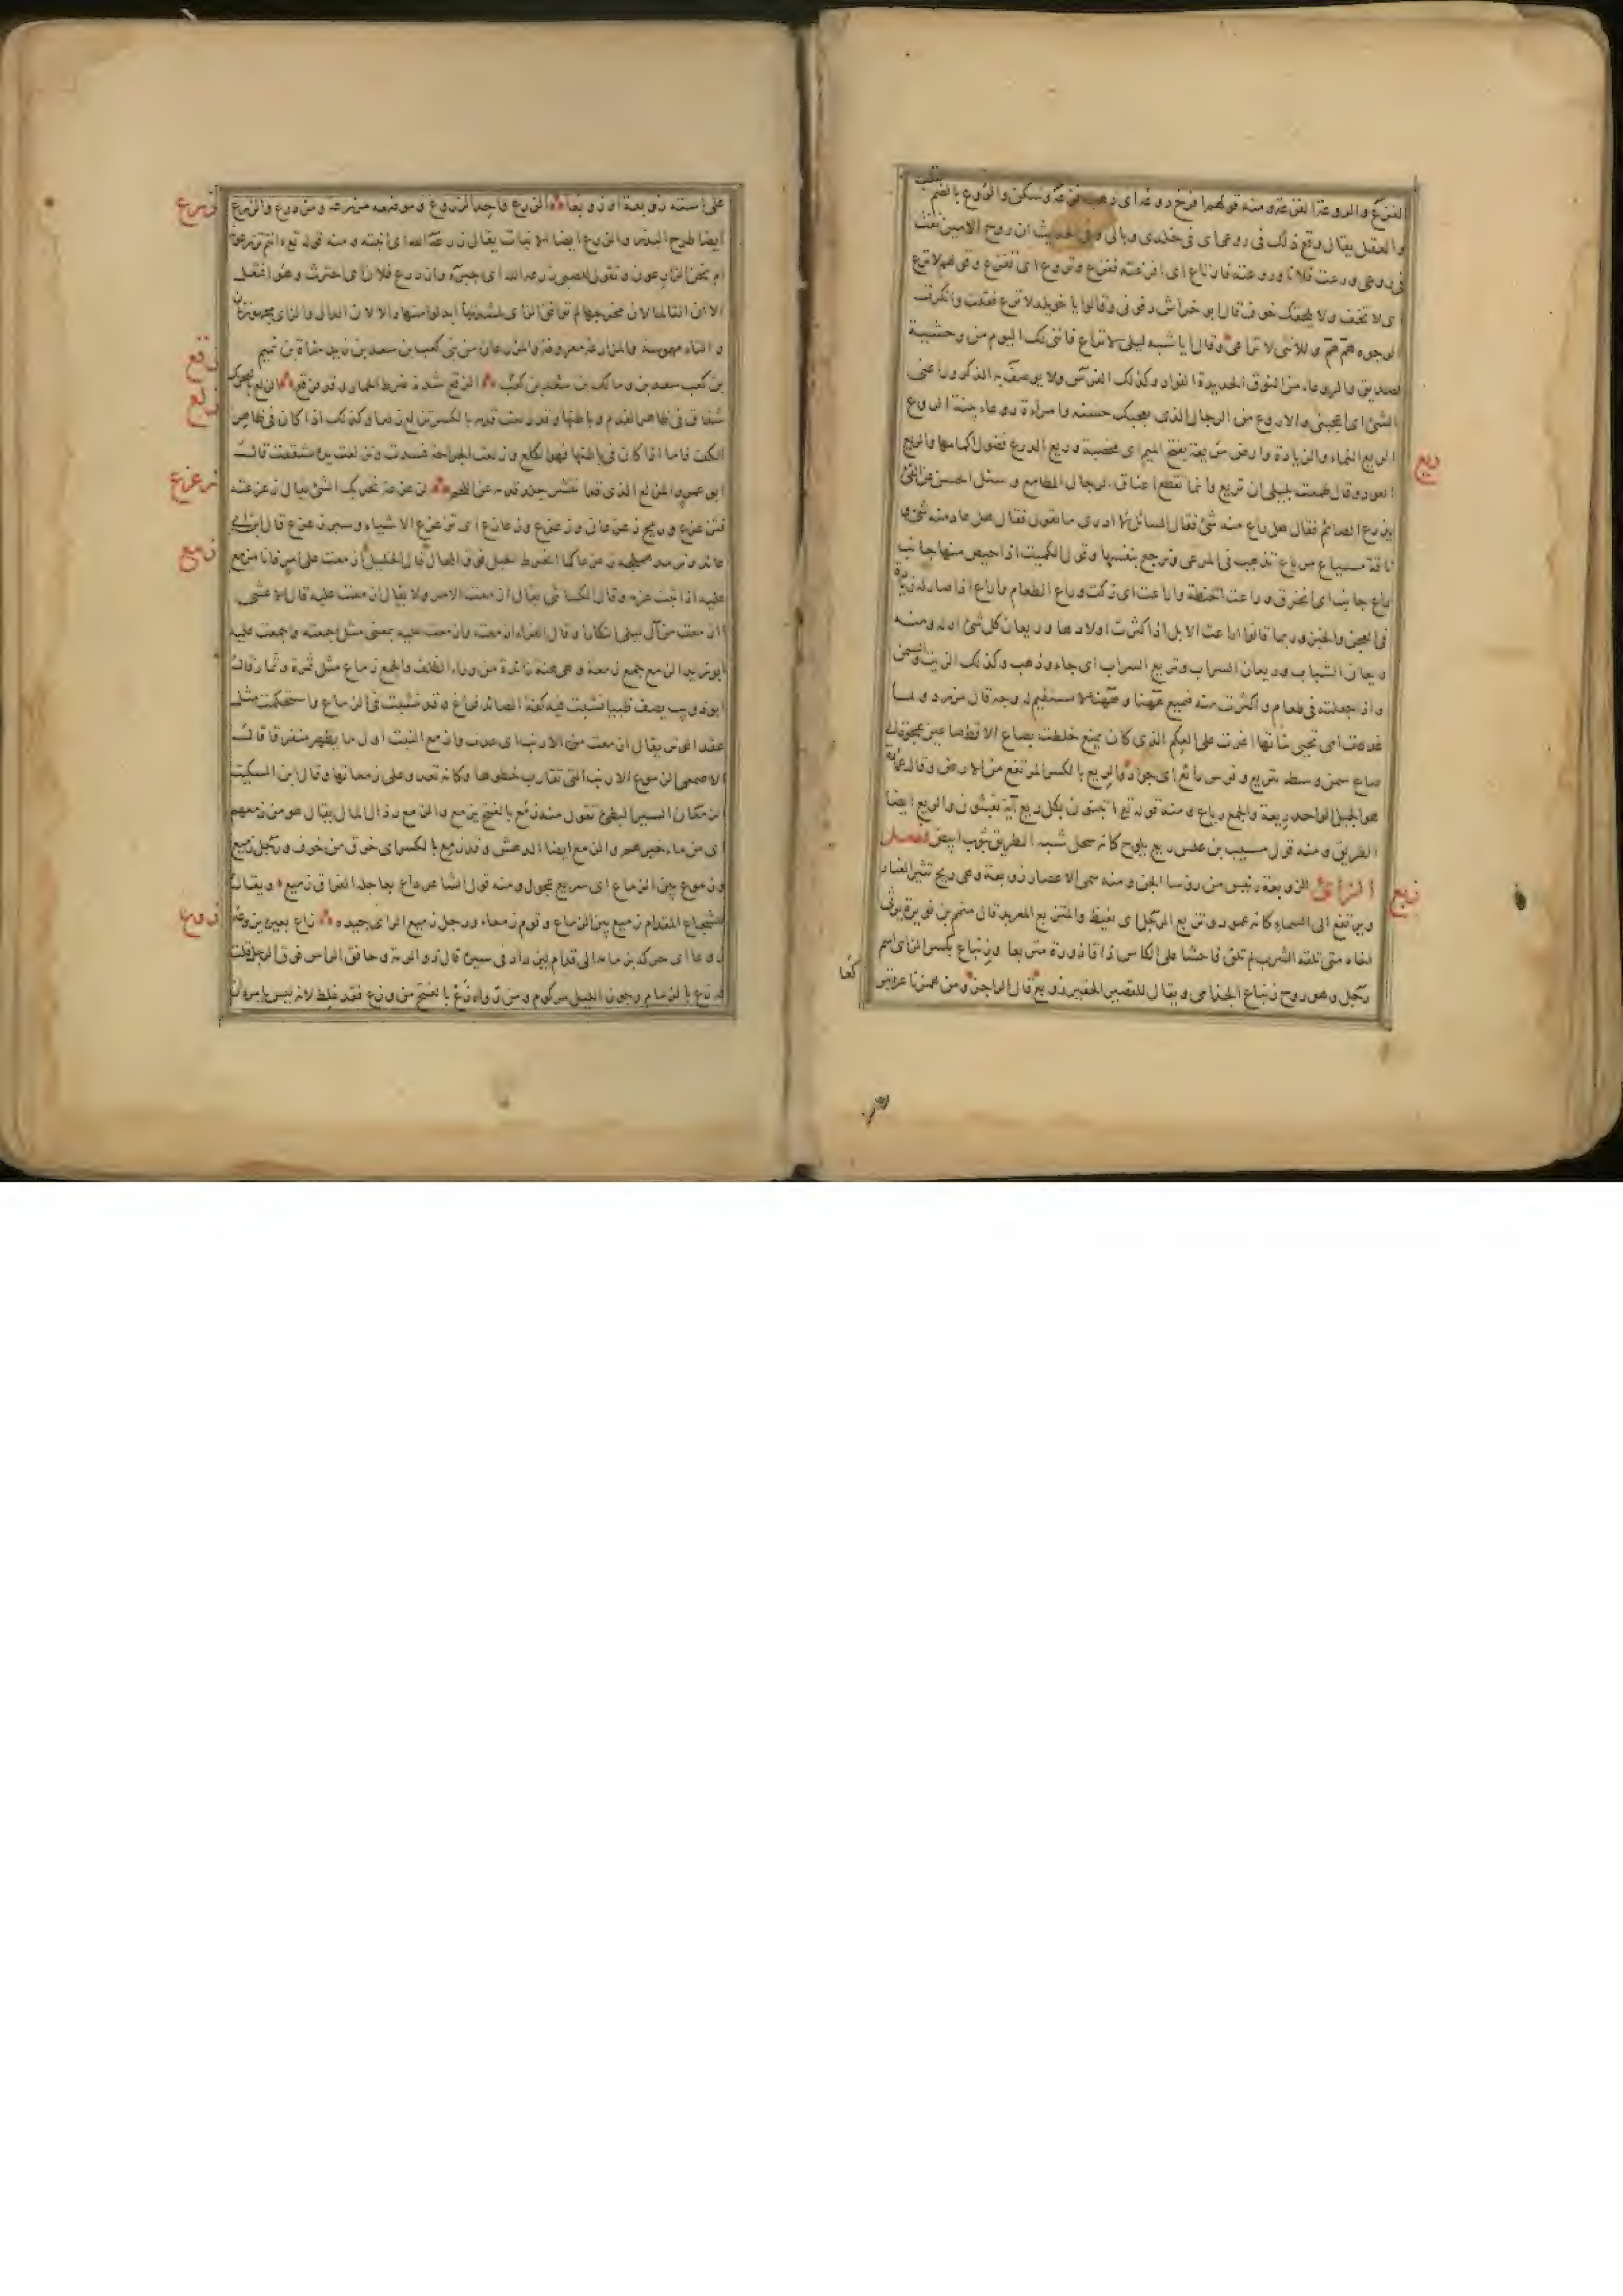 الفزع والروعة الفزعة ومنه قولهم افرخ روعه اى ذهب فزعه وسكن والروع بالضم القلب
والعقل يقال وقع ذلك فى روعى اى فى خلدى وبالى وفى الحديث ان روح الامين نفث
فى روعى ورعت فلانا وروعته فارتاع اى افزعته ففزع وتروع اى تفزع وقولهم لا ترع
اى لا تخف ولا يلحقك خوف قال ابو خراش رفونى وقالوا يا خويلد لا ترع فقلت وانكرت
الوجوه هم هم وللانثى لا تراعى وقال ايا شبه ليلى لا تراعى فاننى لك اليوم من وحشية
لصديق والروعاء من النوق الحديدة الفؤاد وكذلك الفرس ولا يوصف به الذكر وراعنى
الشئ اى اعجبنى والاروع من الرجال الذى يعجبك حسنه وامراة روعاء بينة الروع
ريع
الريع النماء والزيادة وارض مريعة بفتح الميم اى مخصبة وريع الدرع فضول اكمامها والريع
العود وقال طمعت بليلى ان تريع وانما تقطع اعناق الرجال المطامع وسئل الحسن عن القئ
يذرع الصائم فقال هل راع منه شئ فقال السائل ما ادرى ما تقول فقال هل عاد منه شئ و
ناقة مسياع مرياع تذهب فى المرعى وترجع بنفسها وقول الكميت اذا حيص منها جانب
راع جانب اى انخرق وراعت الحنطة واراعت اى زكت وراع الطعام واراع اذا صارت له زيادة
فى العجن والخبز وربما قالوا اراعت الابل اذا كثرت اولادها وريعان كل شئ اوله ومنه
ريعان الشباب وريعان السراب وتريع السراب اى جاء وذهب وكذلك الزيت والسمن
واذا جعلته فى طعام واكثرت منه فتميع ههنا وههنا لا يستقيم له وجه قال مزرد ولما
غدت امى تحيى بناتها اغرت على العكم الذى كان يمنع خلطت بصاع الاقط صاعين عجوة الى
صاع سمن وسطه يتريع وفرس رائع اى جواد والريع بالكسر المرتفع من الارض وقال عمارة
هو الجبل الواحد ريعة والجمع رياع ومنه قوله تع اتبنون بكل ريع آية تعبثون والريع ايضا
الطريق ومنه قول مسيب بن علس ريع يلوح كانه سحل شبه الطريق بثوب ابيض فصل
زبع
الزاى الزوبعة رئيس من رؤسا الجن ومنه سمى الاعصار زوبعة وهى ريح تثير الغبار
ويرتفع الى السماء كانه عمود وتزبع الرجل اى تغيظ والمتزبع المعربد قال متمم بن نويرة يرثى
اخاه متى تلقه الشرب لم تلق فاحشا على الكاس ذا قاذورة متزبعا وزنباع بكسر الزاى اسم
رجل وهو روح زنباع الجذامى ويقال للقصير الحقير زوبع قال الراجز ومن همزنا عزه تبر
كعا
زرع
على استه زوبعة او زوبعا الزرع واحد الزروع وموضعه مزرعة ومزدرع والزرع
ايضا طرح البذر والزرع ايضا الانبات يقال زرعه الله اى انبته ومنه قوله تع ءانتم تزرعونه
ام نحن الزارعون وتقول للصبى زرعه الله اى جبره وازدرع فلان اى احترث وهو افتعل
الا ان التا لما لان مخرجها لم توافق الزاى لشدتها ابدلوا منها دالا لان الدال والزاى مجهورتان
والتاء مهموسة والمزارعة معروفة والمزروعان من بنى كعب بن سعد بن زيد مناة بن تميم
زقع
بن كعب سعد بن ومالك بن سعد بن كعب الزقع شدة ضرط الحمار وقد زقع الزلع بالتحريك
زلع
شقاق فى ظاهر القدم وباطنها وقد زلعت قدمه بالكسر تزلع زلعا وكذلك اذا كان فى ظاهر
الكف فاما اذا كان فى باطنها فهو الكلع وزلعت الجراحة فسدت وتزلعت يده تشققت قال
زعزع
ابو عمرو المزلع الذى قد انقشر جلد قدمه عن اللحم الزعزعة تحريك الشئ يقال زعزعته
فتزعزع وريح زعزعان وزعزع وزعازع اى تزعزع الاشياء وسير زعزع قال ابن ابى
زمع
عائذ وترمد هملجة زعزعا كما انخرط الحبل فوق المحال قال الخليل ازمعت على امر فانا مزمع
عليه اذا ثبت عزمه وقال الكسائى يقال ازمعت الامر ولا يقال ازمعت عليه قال الاعشى
اازمعت من آل ليلى ابتكارا وقال الفراء ازمعته وازمعت عليه بمعنى مثل اجمعته واجمعت عليه
ابو زيد الزمع جمع زمعة وهى هنة زائدة من وراء الظلف والجمع زماع مثل ثمرة وثمار قال
ابو ذويب يصف ظبيا نشبت فيه كفة الصائد فراغ وقد نشبت فى الزماع واستحكمت مثل
عقد الوتر يقال ازمعت من الارنب اى عدت وازمع النبت اول ما يظهر متفرقا قال
الاصمعى الزموع الارنب التى تقارب خطوها وكانه تعدو على زمعاتها وقال ابن السكيت
الزمعان السير البطئ تقول منه زمع بالفتح يزمع والزمع رذال المال يقال هو من زمعهم
اى من ماء خيرهم والزمع ايضا الدهش وقد زمع بالكسر اى خرق من خوف ورجل زميع
وزموع بين الزماع اى سريع عجول ومنه قول الشاعر داع بعاجلة الفراق زميع ويقال
زوع
للشجاع المقدام زميع بين الزماع وقوم زمعاء ورجل زميع الراى جيده زاع بعيره يزوعه
زوعا اى حركه بزمامه الى قدام ليزداد فى سيره قال ذو الرمة وحافق الراس فوق الرحل قلت
له زع بالزمام وجوز الليل مركوم ومن رواه زع بالفتح من وزع فقد غلط لانه ليس يامره ان